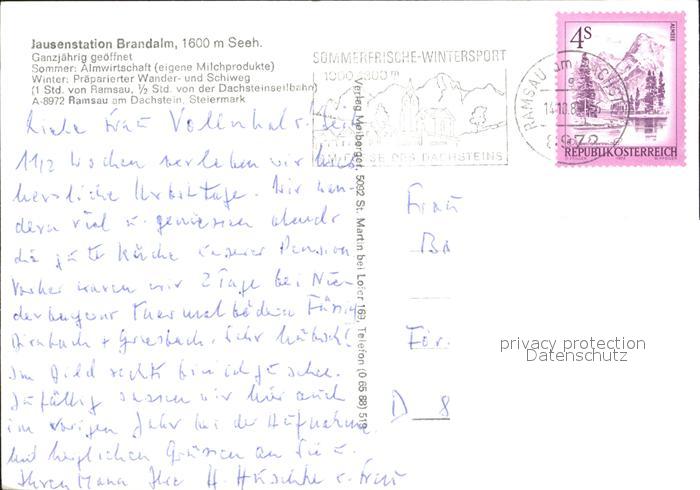 Jausenstation Brandalm, 1600 m Seeh.
Ganzjährig geöffnet
Sommer: Almwirtschaft (eigene Milchprodukte)
Winter: Präparierter Wander- und Schiweg
(1 Std. von Ramsau, ½ Std. von der Dachsteinseilbahn)
A-8972 Ramsau am Dachstein, Steiermark
SOMMERFRISCHE-WINTERSPORT
1000-2800 m
DACHSTEINS
RAMSAU am DACHST
14.10.8
8972
4S
ALMSEE
REPUBLIK ÖSTERREICH
Verlag Meiberger, 5092 St. Martin bei Lofer 169, Telefon (0 65 88) 519
Liebe Frau Seit
1 1/2 Wochen verleben wir hier
herrliche Urlaubstage. Wir wan-
dern viel u. geniessen abends
die gute Küche unserer Pension
Vorher waren wir 2 Tage bei Nie-
derbayerns Thermalbädern Füssing
Birnbach + Griesbach. Sehr hübsch!
Im Bild rechts bin ich zu sehen.
Zufällig sassen wir hier auch
im vorigen Jahr bei der Aufnahme.
Mit herzlichen Grüssen an Sie u.
Ihren Mann Ihre H. u. Frau
Frau
Ba
För.
D 8
privacy protection
Datenschutz